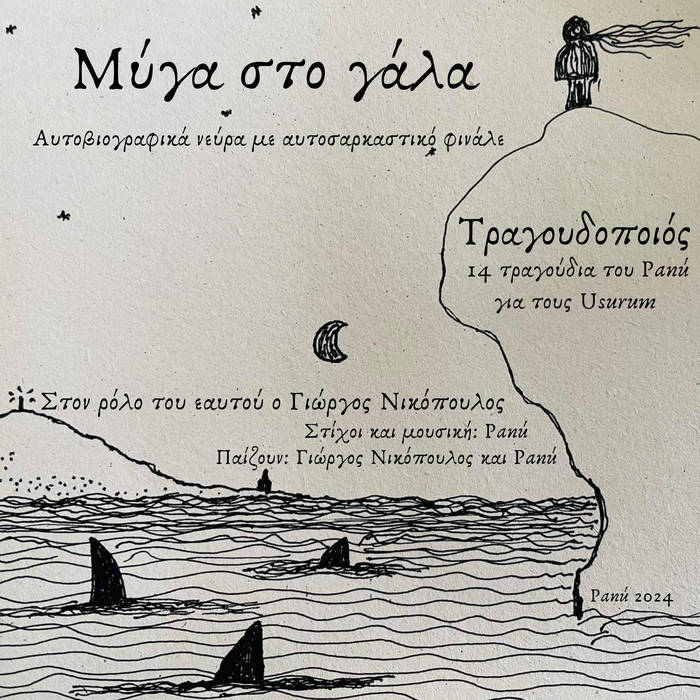 Μύγα στο γάλα
Αυτοβιογραφικά νεύρα με αυτοσαρκαστικό φινάλε
Τραγουδοποιός
14 τραγούδια του Panú
για τους Usurum
Στον ρόλο του εαυτού ο Γιώργος Νικόπουλος
Στίχοι και μουσική: Panú
Παίζουν: Γιώργος Νικόπουλος και Panú
Panú 2024